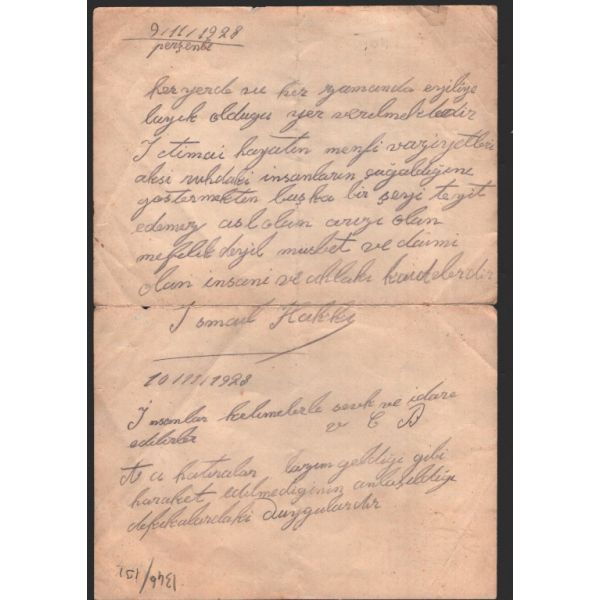 9/11/1928
perşenbe
her yerde ve her zamanda eyiliğe
layık olduğu yer verilmektedir
İctimai hayatın menfi vaziyetleri
aksi ruhdaki insanların çoğaldığını
göstermekten başka bir şeyi teyit
edemez asl olan arızi olan
değil musbet ve daimi
olan insani ve ahlaki kaidelerdir
İsmail Hakkı
10/11/1928
İnsanlar kelimelerle sevk ve idare
edilirler
v C D
Acı hatıralar lazım geldiği gibi
haraket edilmediginin anlaşıldığı
dakikalardaki duygulardır
1346/151